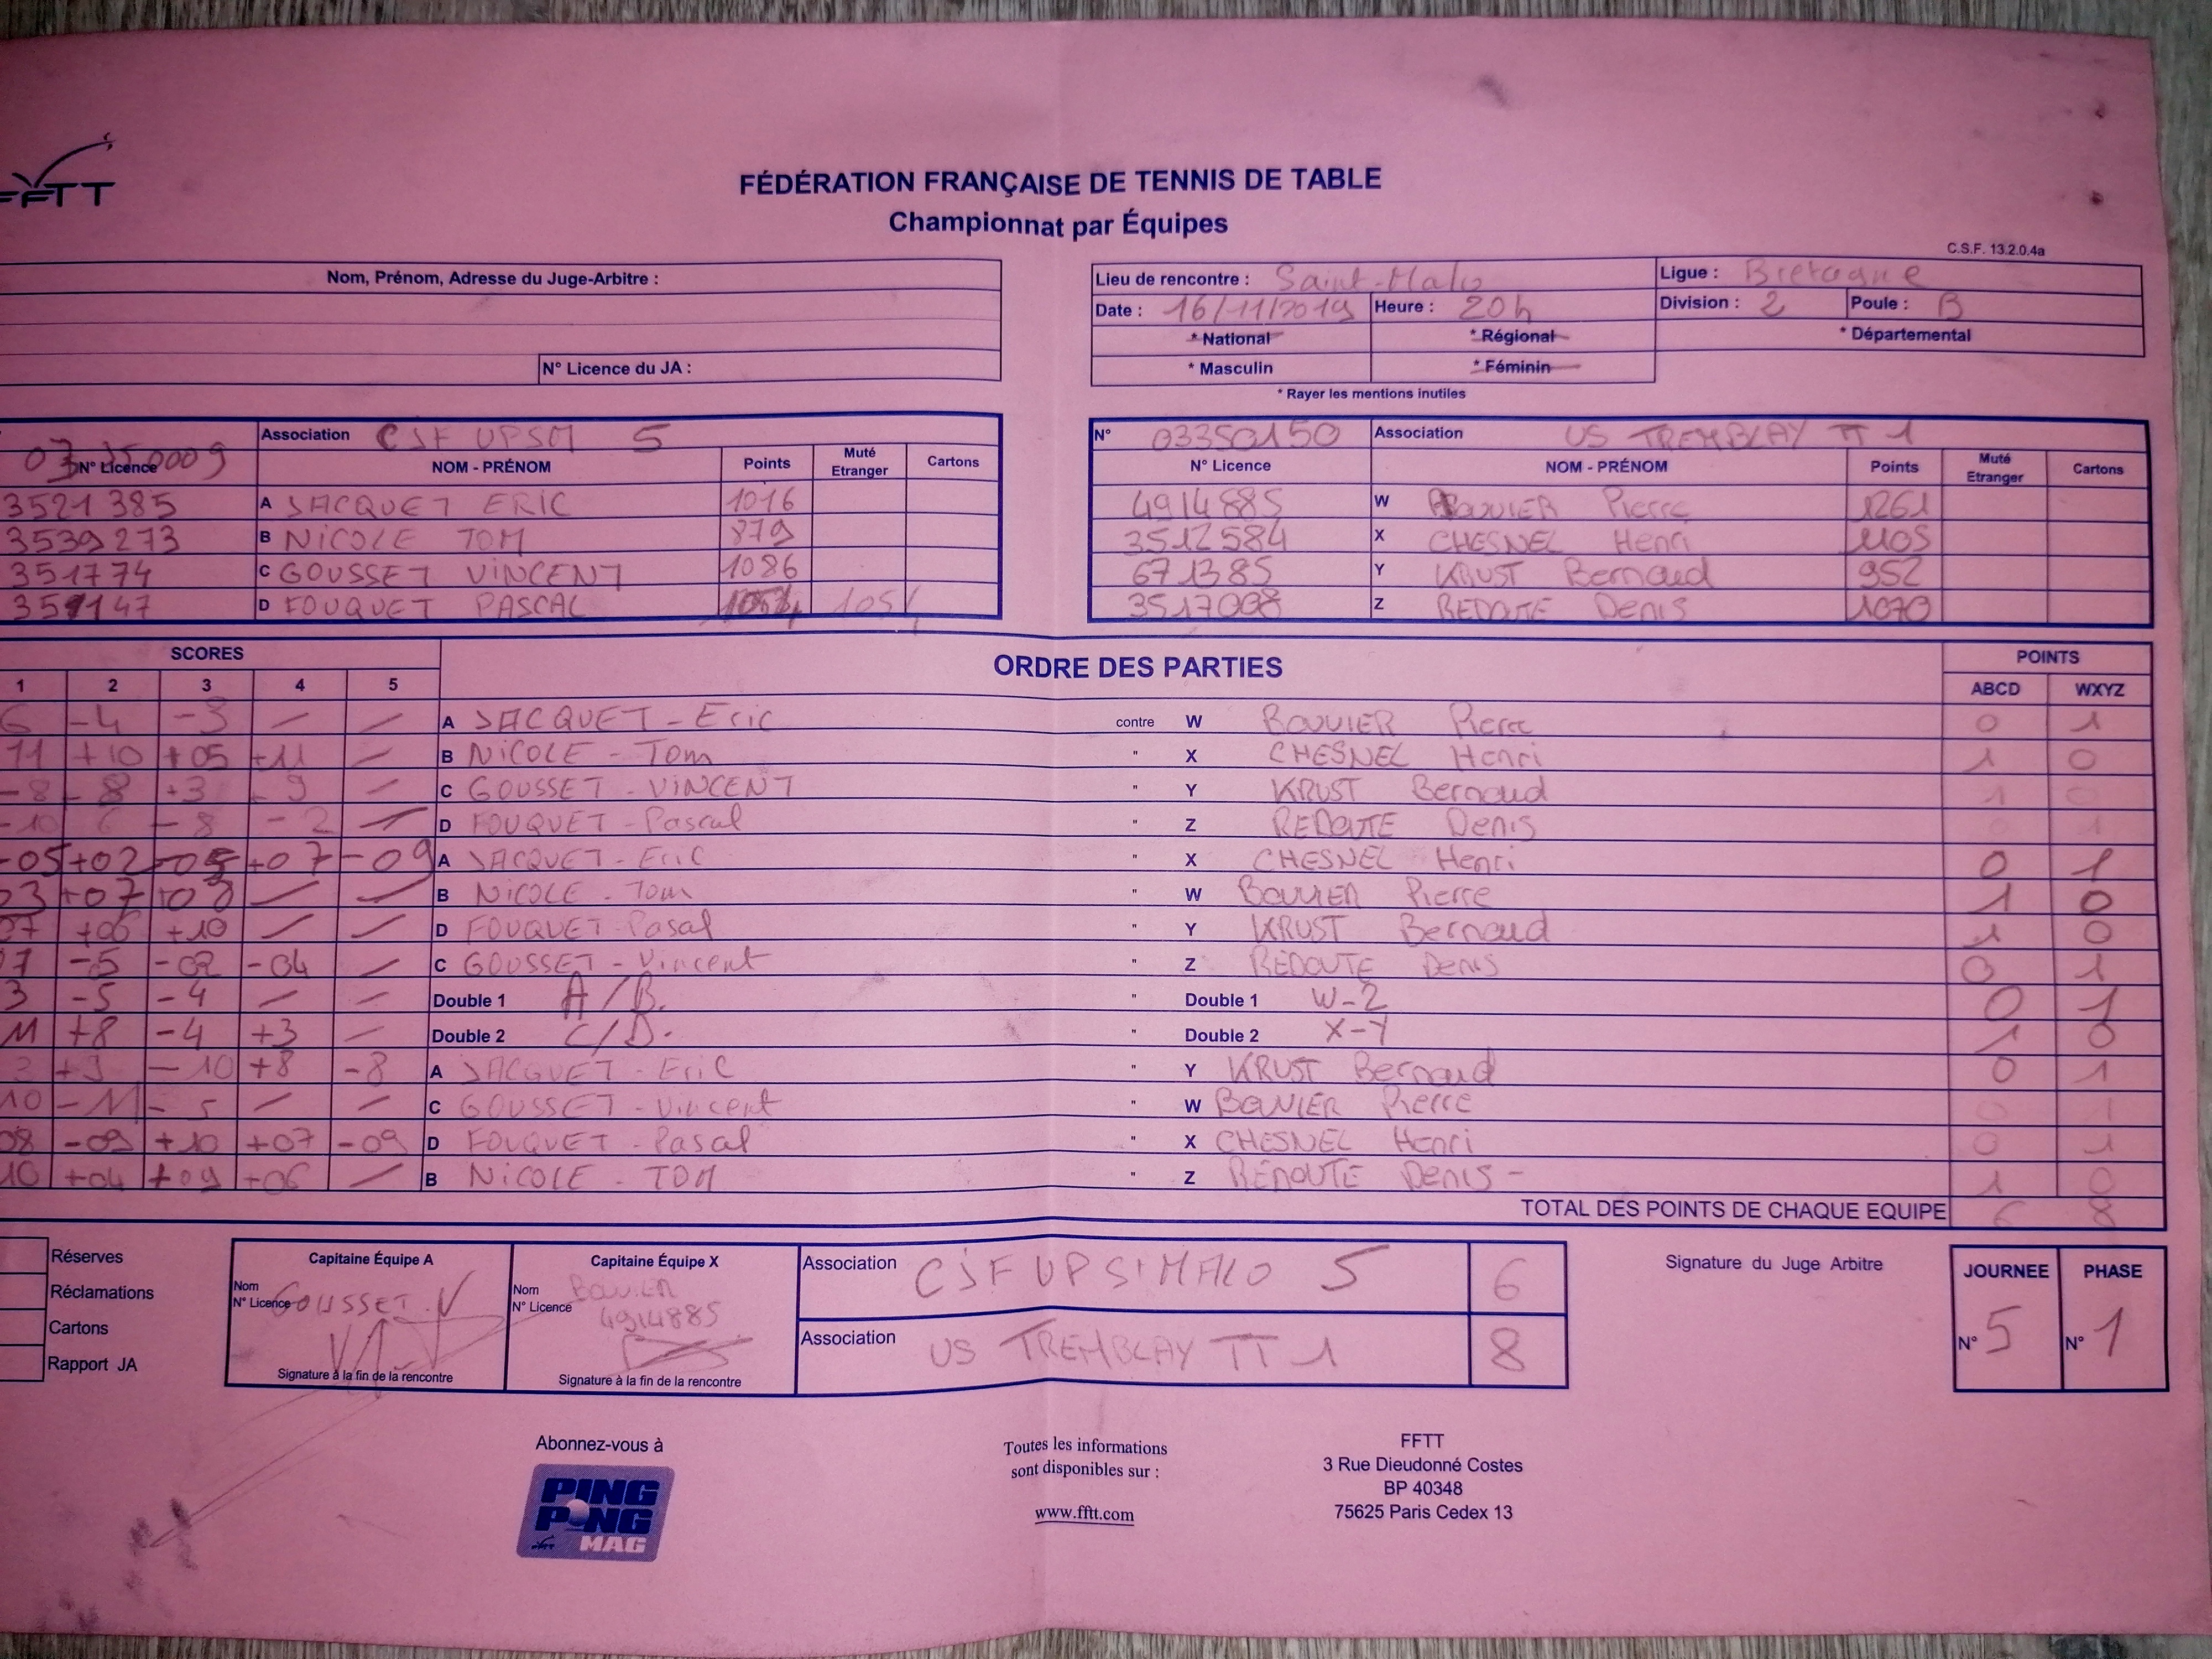 FFTT
FÉDÉRATION FRANÇAISE DE TENNIS DE TABLE
Championnat par Équipes
C.S.F. 13.2.0.4a
Nom, Prénom, Adresse du Juge-Arbitre :
N° Licence du JA :
Lieu de rencontre : Saint-Malo Ligue : Bretagne
Date : 16/11/2019 Heure : 20h Division : 2 Poule : B
* National * Régional * Départemental
* Masculin * Féminin
* Rayer les mentions inutiles
Association CSF UPSM 5
N° Licence NOM - PRÉNOM Points Muté Etranger Cartons
3521385 A JACQUET ERIC 1016
3539273 B NICOLE TOM 879
351774 C GOUSSET VINCENT 1086
D FOUQUET PASCAL
N° 03350150 Association US TREMBLAY TT 1
N° Licence NOM - PRÉNOM Points Muté Etranger Cartons
4914885 W BOUVIER Pierre 1261
3512584 X CHESNEL Henri 1105
671385 Y KRUST Bernard 952
3517008 Z REDOUTE Denis 1070
SCORES ORDRE DES PARTIES POINTS
1 2 3 4 5 ABCD WXYZ
6 -4 -3 — — A JACQUET - Eric contre W BOUVIER Pierre 0 1
11 +10 +05 +11 — B NICOLE - Tom " X CHESNEL Henri 1 0
-8 -8 +3 -9 — C GOUSSET - VINCENT " Y KRUST Bernard 1 0
-10 6 -8 -2 — D FOUQUET - Pascal " Z REDOUTE Denis 1
-05 +02 -05 +07 -09 A JACQUET - Eric " X CHESNEL Henri 0 1
03 +07 +08 — — B NICOLE - Tom " W BOUVIER Pierre 1 0
07 +06 +10 — — D FOUQUET - Pasal " Y KRUST Bernard 1 0
7 -5 -02 -04 — C GOUSSET - Vincent " Z REDOUTE Denis 0 1
3 -5 -4 — — Double 1 A/B. " Double 1 W-Z 0 1
11 +8 -4 +3 — Double 2 C/D. " Double 2 X-Y 1 0
3 +9 -10 +8 -8 A JACQUET - Eric " Y KRUST Bernard 0 1
10 -11 -5 — — C GOUSSET - Vincent " W BOUVIER Pierre 0 1
08 -09 +10 +07 -09 D FOUQUET - Pasal " X CHESNEL Henri 0 1
10 +04 +09 +06 — B NICOLE - TOM " Z REDOUTE Denis - 1 0
TOTAL DES POINTS DE CHAQUE EQUIPE 6 8
Réserves
Réclamations
Cartons
Rapport JA
Capitaine Équipe A
Nom
N° Licence GOUSSET.V
Signature à la fin de la rencontre
Capitaine Équipe X
Nom BOUVIER
N° Licence 4914885
Signature à la fin de la rencontre
Association CJF UP St MALO 5 6
Association US TREMBLAY TT 1 8
Signature du Juge Arbitre
JOURNEE PHASE
N° 5 N° 1
Abonnez-vous à
PING PONG MAG
Toutes les informations
sont disponibles sur :
www.fftt.com
FFTT
3 Rue Dieudonné Costes
BP 40348
75625 Paris Cedex 13